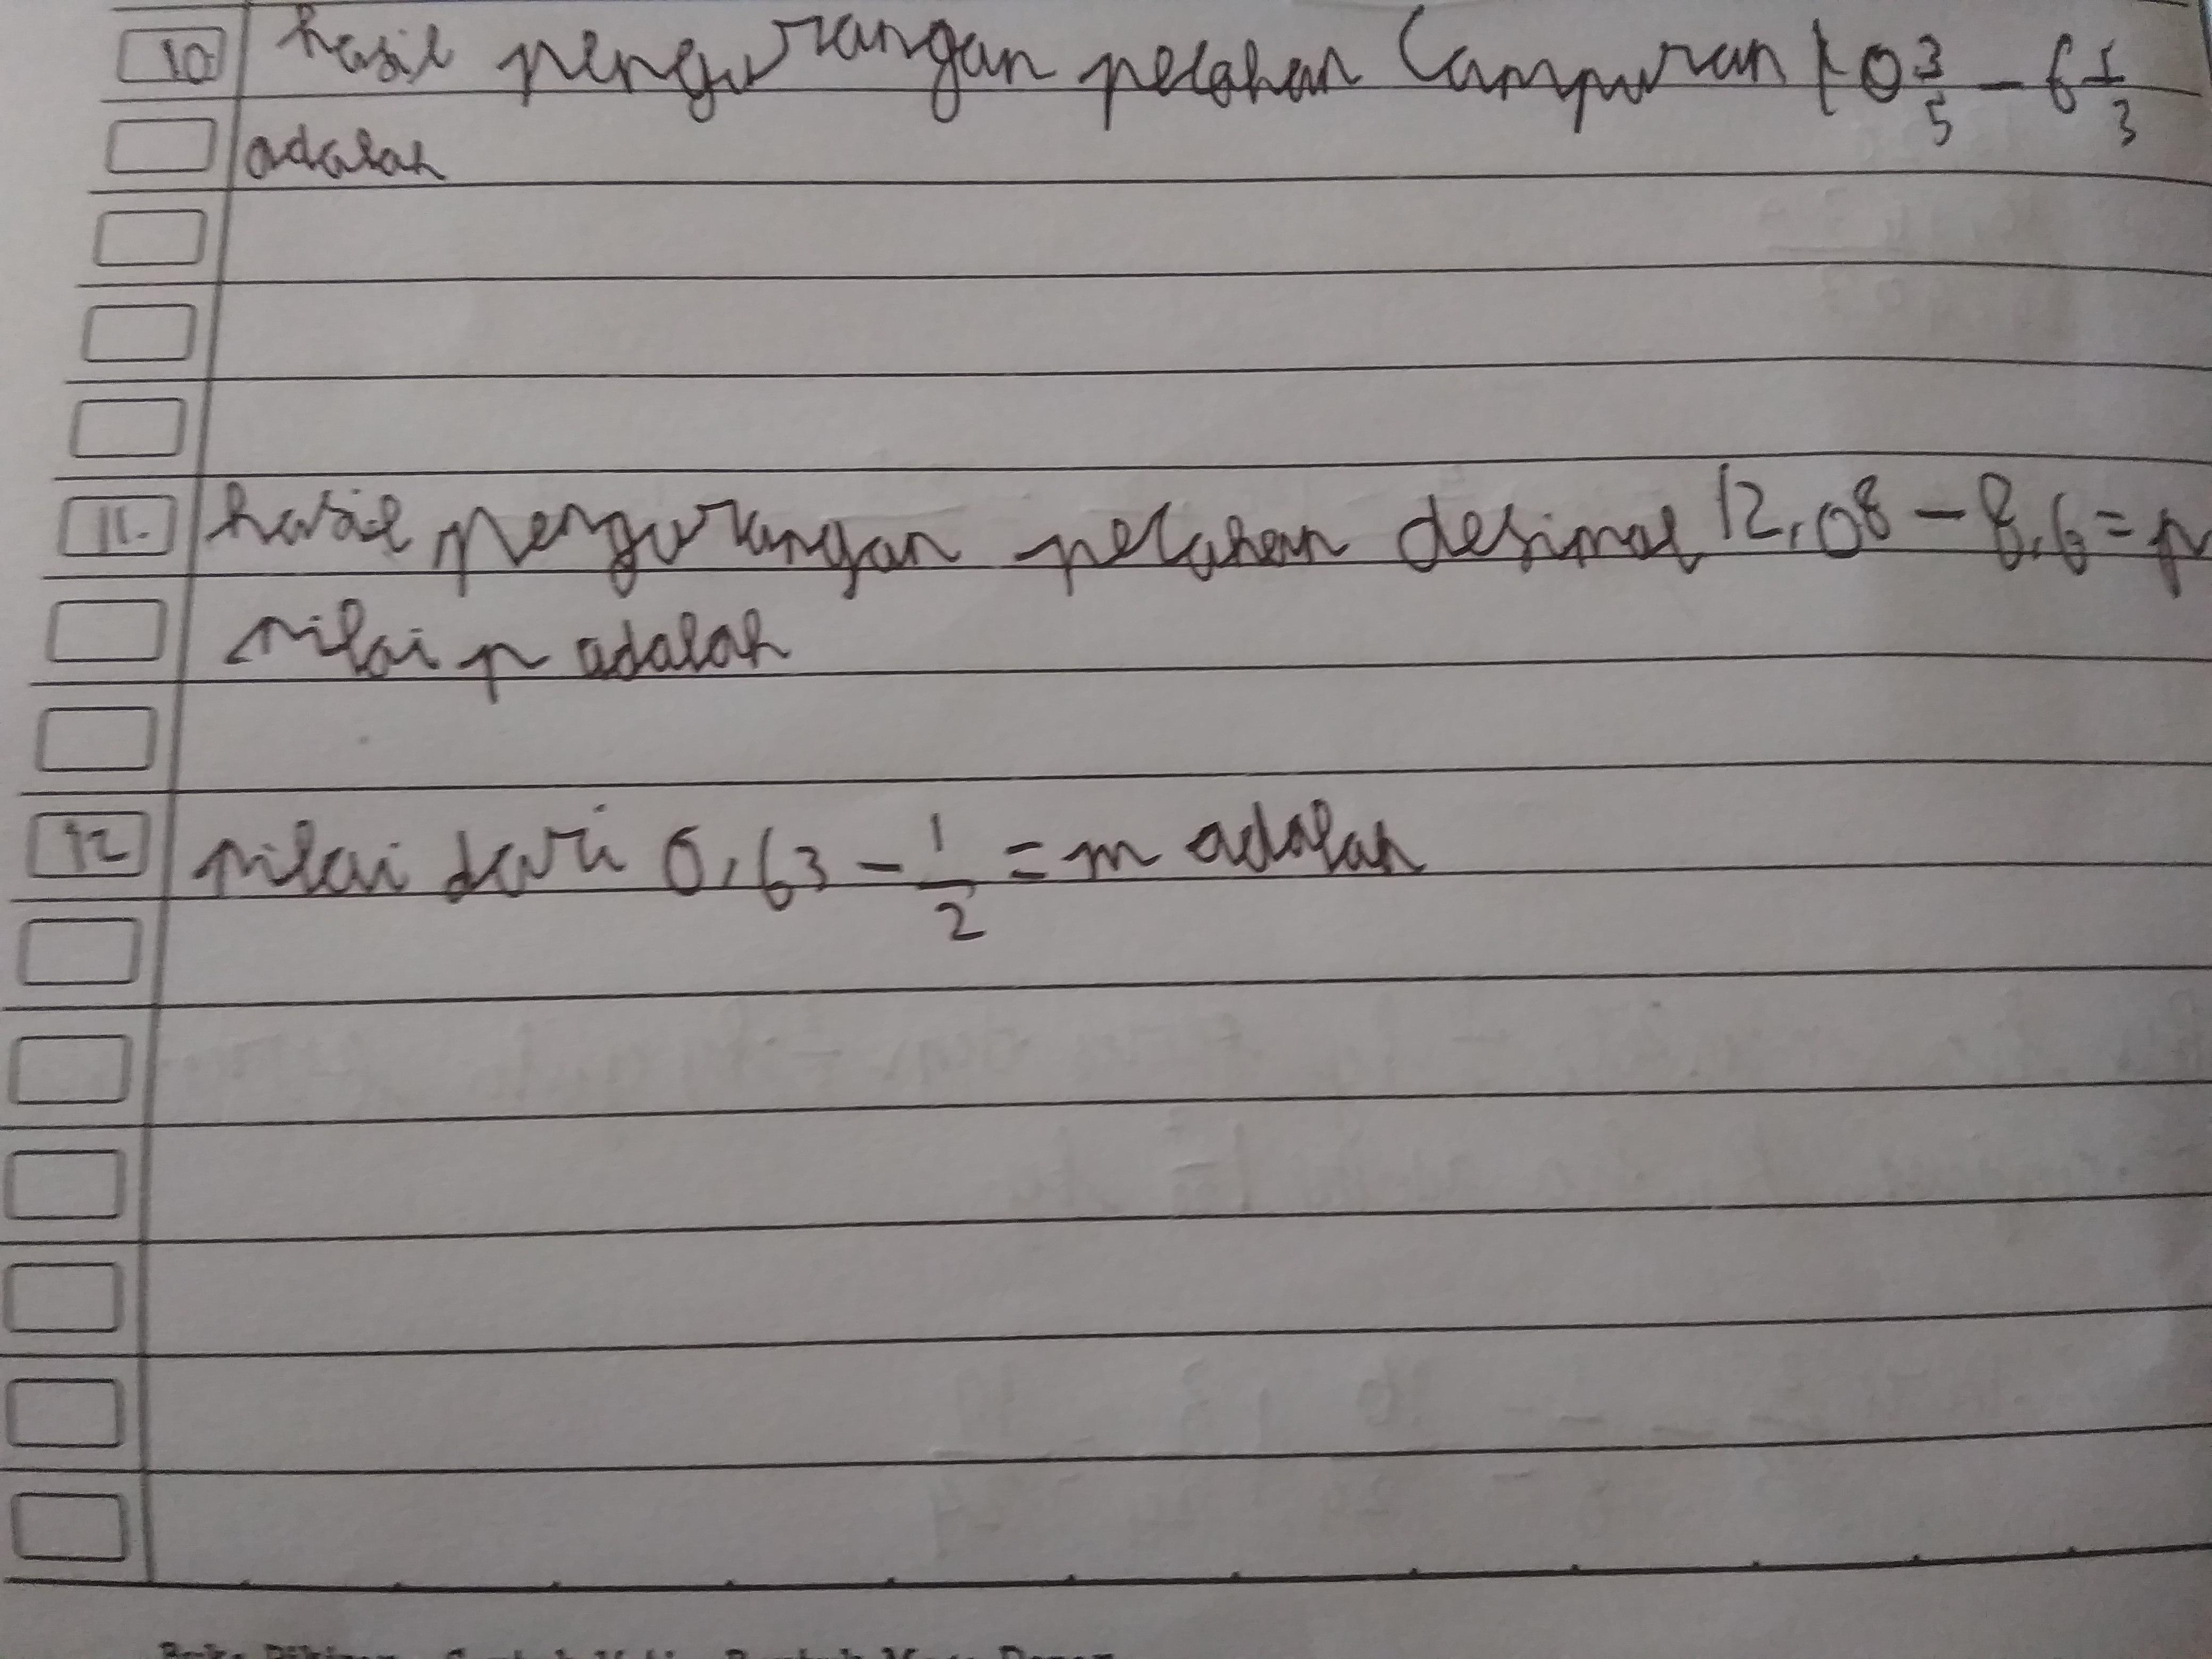 10. hasil pengurangan pecahan Campuran 10 3/5 - 6 1/3
adalah
11. hasil pengurangan pecahan desimal 12,08 - 8,6 = p
nilai p adalah
12 nilai dari 0,63 - 1/2 = m adalah